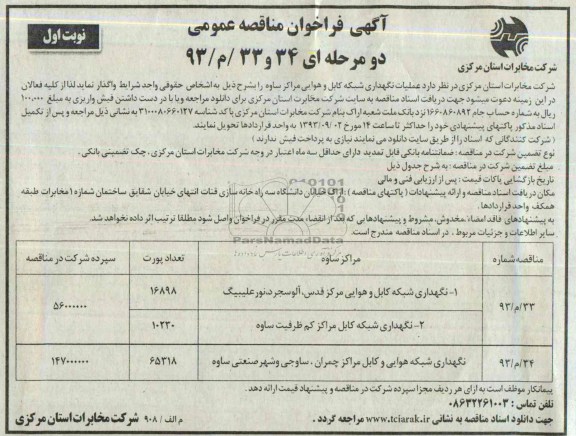 آگهی فراخوان مناقصه عمومی
دو مرحله ای ۳۴ و ۳۳ /م/ ۹۳
نوبت اول
شرکت مخابرات استان مرکزی
شرکت مخابرات استان مرکزی در نظر دارد عملیات نگهداری شبکه کابل و هوایی مراکز ساوه را بشرح ذیل به اشخاص حقوقی واجد شرایط واگذار نماید لذا از کلیه فعالان
در این زمینه دعوت میشود جهت دریافت اسناد مناقصه به سایت شرکت مخابرات استان مرکزی برای دانلود مراجعه و یا با در دست داشتن فیش واریزی به مبلغ ۱۰۰,۰۰۰
ریال به شماره حساب جام ۱۶۶۰۸۶۰۸۹۲ نزد بانک ملت شعبه اراک بنام شرکت مخابرات استان مرکزی با کد شناسه ۳۱۰۰۰۸۰۶۶۰۱۲۷ به نشانی ذیل مراجعه و پس از تکمیل
اسناد مذکور پاکتهای پیشنهادی خود را حداکثر تا ساعت ۱۴ مورخ ۱۳۹۳/۰۹/۰۲ به واحد قراردادها تحویل نمایند.
( شرکت کنندگانی که اسناد را از طریق سایت دانلود می نمایند نیازی به پرداخت فیش ندارند )
نوع تضمین شرکت در مناقصه : ضمانتنامه بانکی قابل تمدید دارای حداقل سه ماه اعتبار در وجه شرکت مخابرات استان مرکزی، چک تضمینی بانکی .
مبلغ تضمین شرکت در مناقصه : به شرح جدول ذیل
تاریخ بازگشایی پاکات قیمت : پس از ارزیابی فنی و مالی
مکان دریافت اسناد مناقصه و ارائه پیشنهادات ( پاکتهای مناقصه ): اراک خیابان دانشگاه سه راه خانه سازی قنات انتهای خیابان شقایق ساختمان شماره ۱ مخابرات طبقه
همکف واحد قراردادها.
به پیشنهادهای فاقد امضاء، مخدوش، مشروط و پیشنهادهایی که بعد از انقضاء مدت مقرر در فراخوان واصل شود مطلقا ترتیب اثر داده نخواهد شد.
سایر اطلاعات و جزئیات مربوط ، در اسناد مناقصه مندرج است.
ParsNamadData
مناقصه شماره | مراکز ساوه | تعداد پورت | سپرده شرکت در مناقصه
۳۳/م/۹۳ | ۱- نگهداری شبکه کابل و هوایی مرکز قدس، آلوسجرد، نورعلیبیگ | ۱۶۸۹۸ | ۵۶۰۰۰۰۰۰
۲- نگهداری شبکه کابل مراکز کم ظرفیت ساوه | ۱۰۲۳۰
۳۴/م/۹۳ | نگهداری شبکه هوایی و کابل مراکز چمران ، ساوجی و شهر صنعتی ساوه | ۶۵۳۱۸ | ۱۴۷۰۰۰۰۰۰
پیمانکار موظف است به ازای هر ردیف مجزا سپرده شرکت در مناقصه و پیشنهاد قیمت ارائه دهد.
تلفن تماس : ۰۸۶۳۲۲۶۱۰۰۳
جهت دانلود اسناد مناقصه به نشانی www.tciarak.ir مراجعه گردد .
م الف / ۹۰۸ شرکت مخابرات استان مرکزی